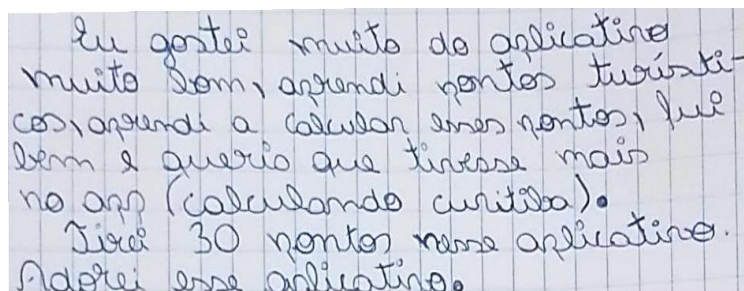 Eu gostei muito do aplicativo
muito bom, aprendi pontos turísti-
cos, aprendi a calcular esses pontos, fui
bem e queria que tivesse mais
no app (calculando curitiba).
Tirei 30 pontos nesse aplicativo.
Adorei esse aplicativo.